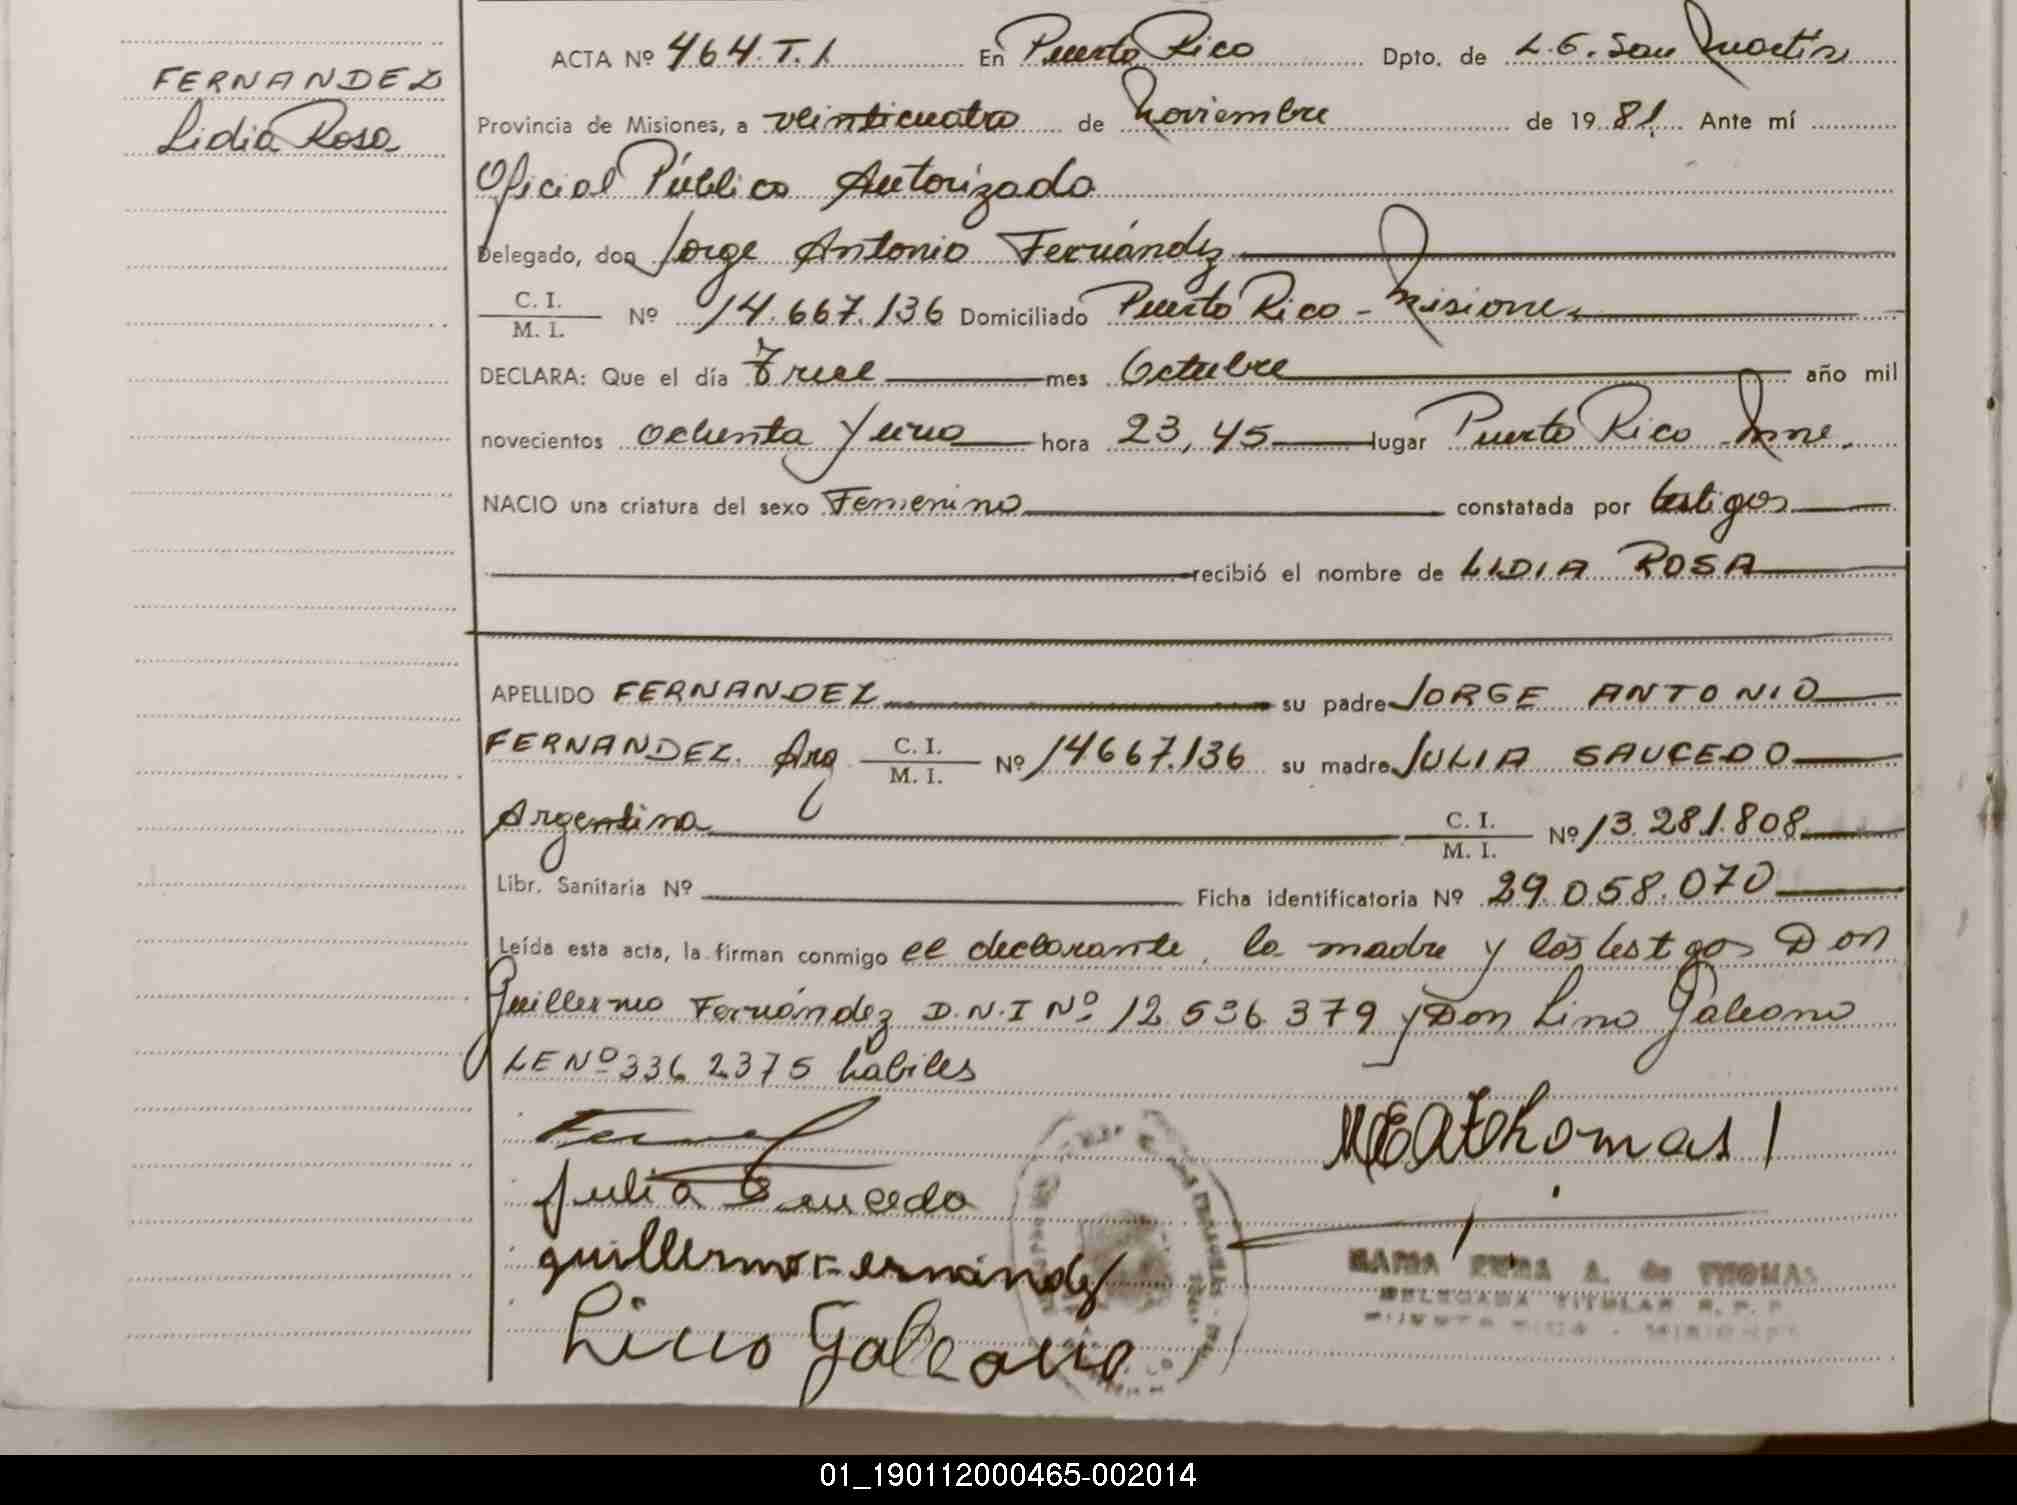 FERNANDEZ
Lidia Rosa
ACTA Nº 464.T.1 En Puerto Rico Dpto. de L.G. San Martín
Provincia de Misiones, a veinticuatro de Noviembre de 1981 Ante mí
Oficial Público Autorizado
Delegado, don Jorge Antonio Fernández
C. I.
M. I. Nº 14.667.136 Domiciliado Puerto Rico - Misiones
DECLARA: Que el día Trece mes Octubre año mil
novecientos ochenta y uno hora 23,45 lugar Puerto Rico - Mnes.
NACIO una criatura del sexo Femenino constatada por testigos
recibió el nombre de LIDIA ROSA
APELLIDO FERNANDEZ su padre JORGE ANTONIO
FERNANDEZ. Arg C. I. M. I. Nº 14667.136 su madre JULIA SAUCEDO
Argentina C. I. M. I. Nº 13.281.808
Libr. Sanitaria Nº Ficha identificatoria Nº 29.058.070
Leída esta acta, la firman conmigo el declarante, la madre y los testigos Don
Guillermo Fernández D.N.I Nº 12.536.379 y Don Lino Galeano
LE Nº 336 2375 habiles
Julia Saucedo
guillermo Fernández
Lino Galeano
MEAthomas
MARIA EMMA A. de THOMAS
DELEGADA TITULAR R. P. P.
PUERTO RICO - MISIONES
01_190112000465-002014